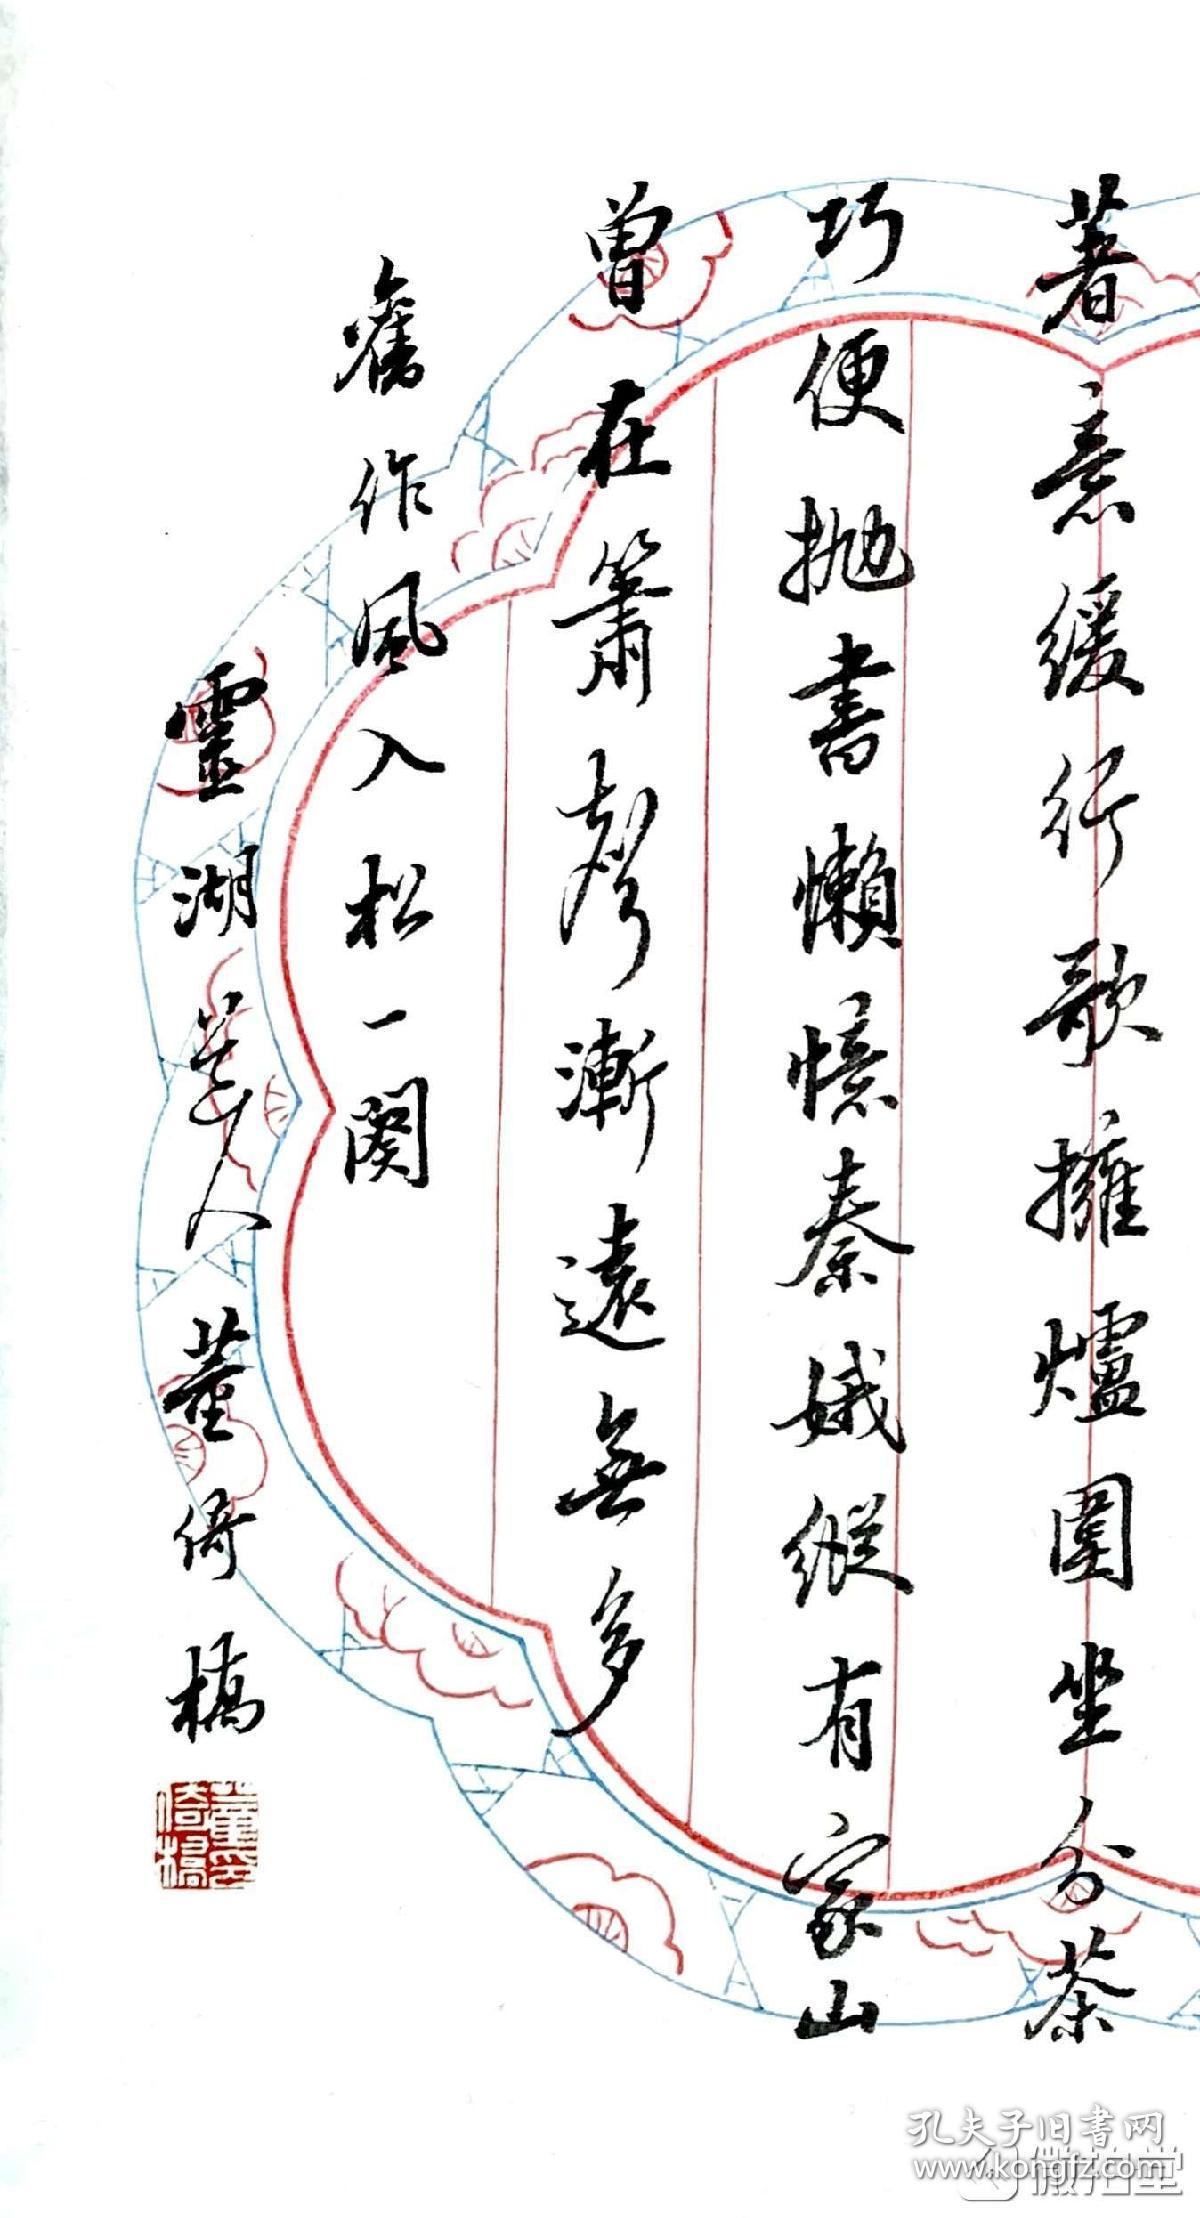 著意緩行歌擁爐圍坐分茶
巧便抛書懶憶秦娥縱有家山
曾在簫聲漸遠無多
舊作風入松一闋
靈湖草人董倚橋
董倚橋印
孔夫子旧书网
www.kongfz.com
微拍堂